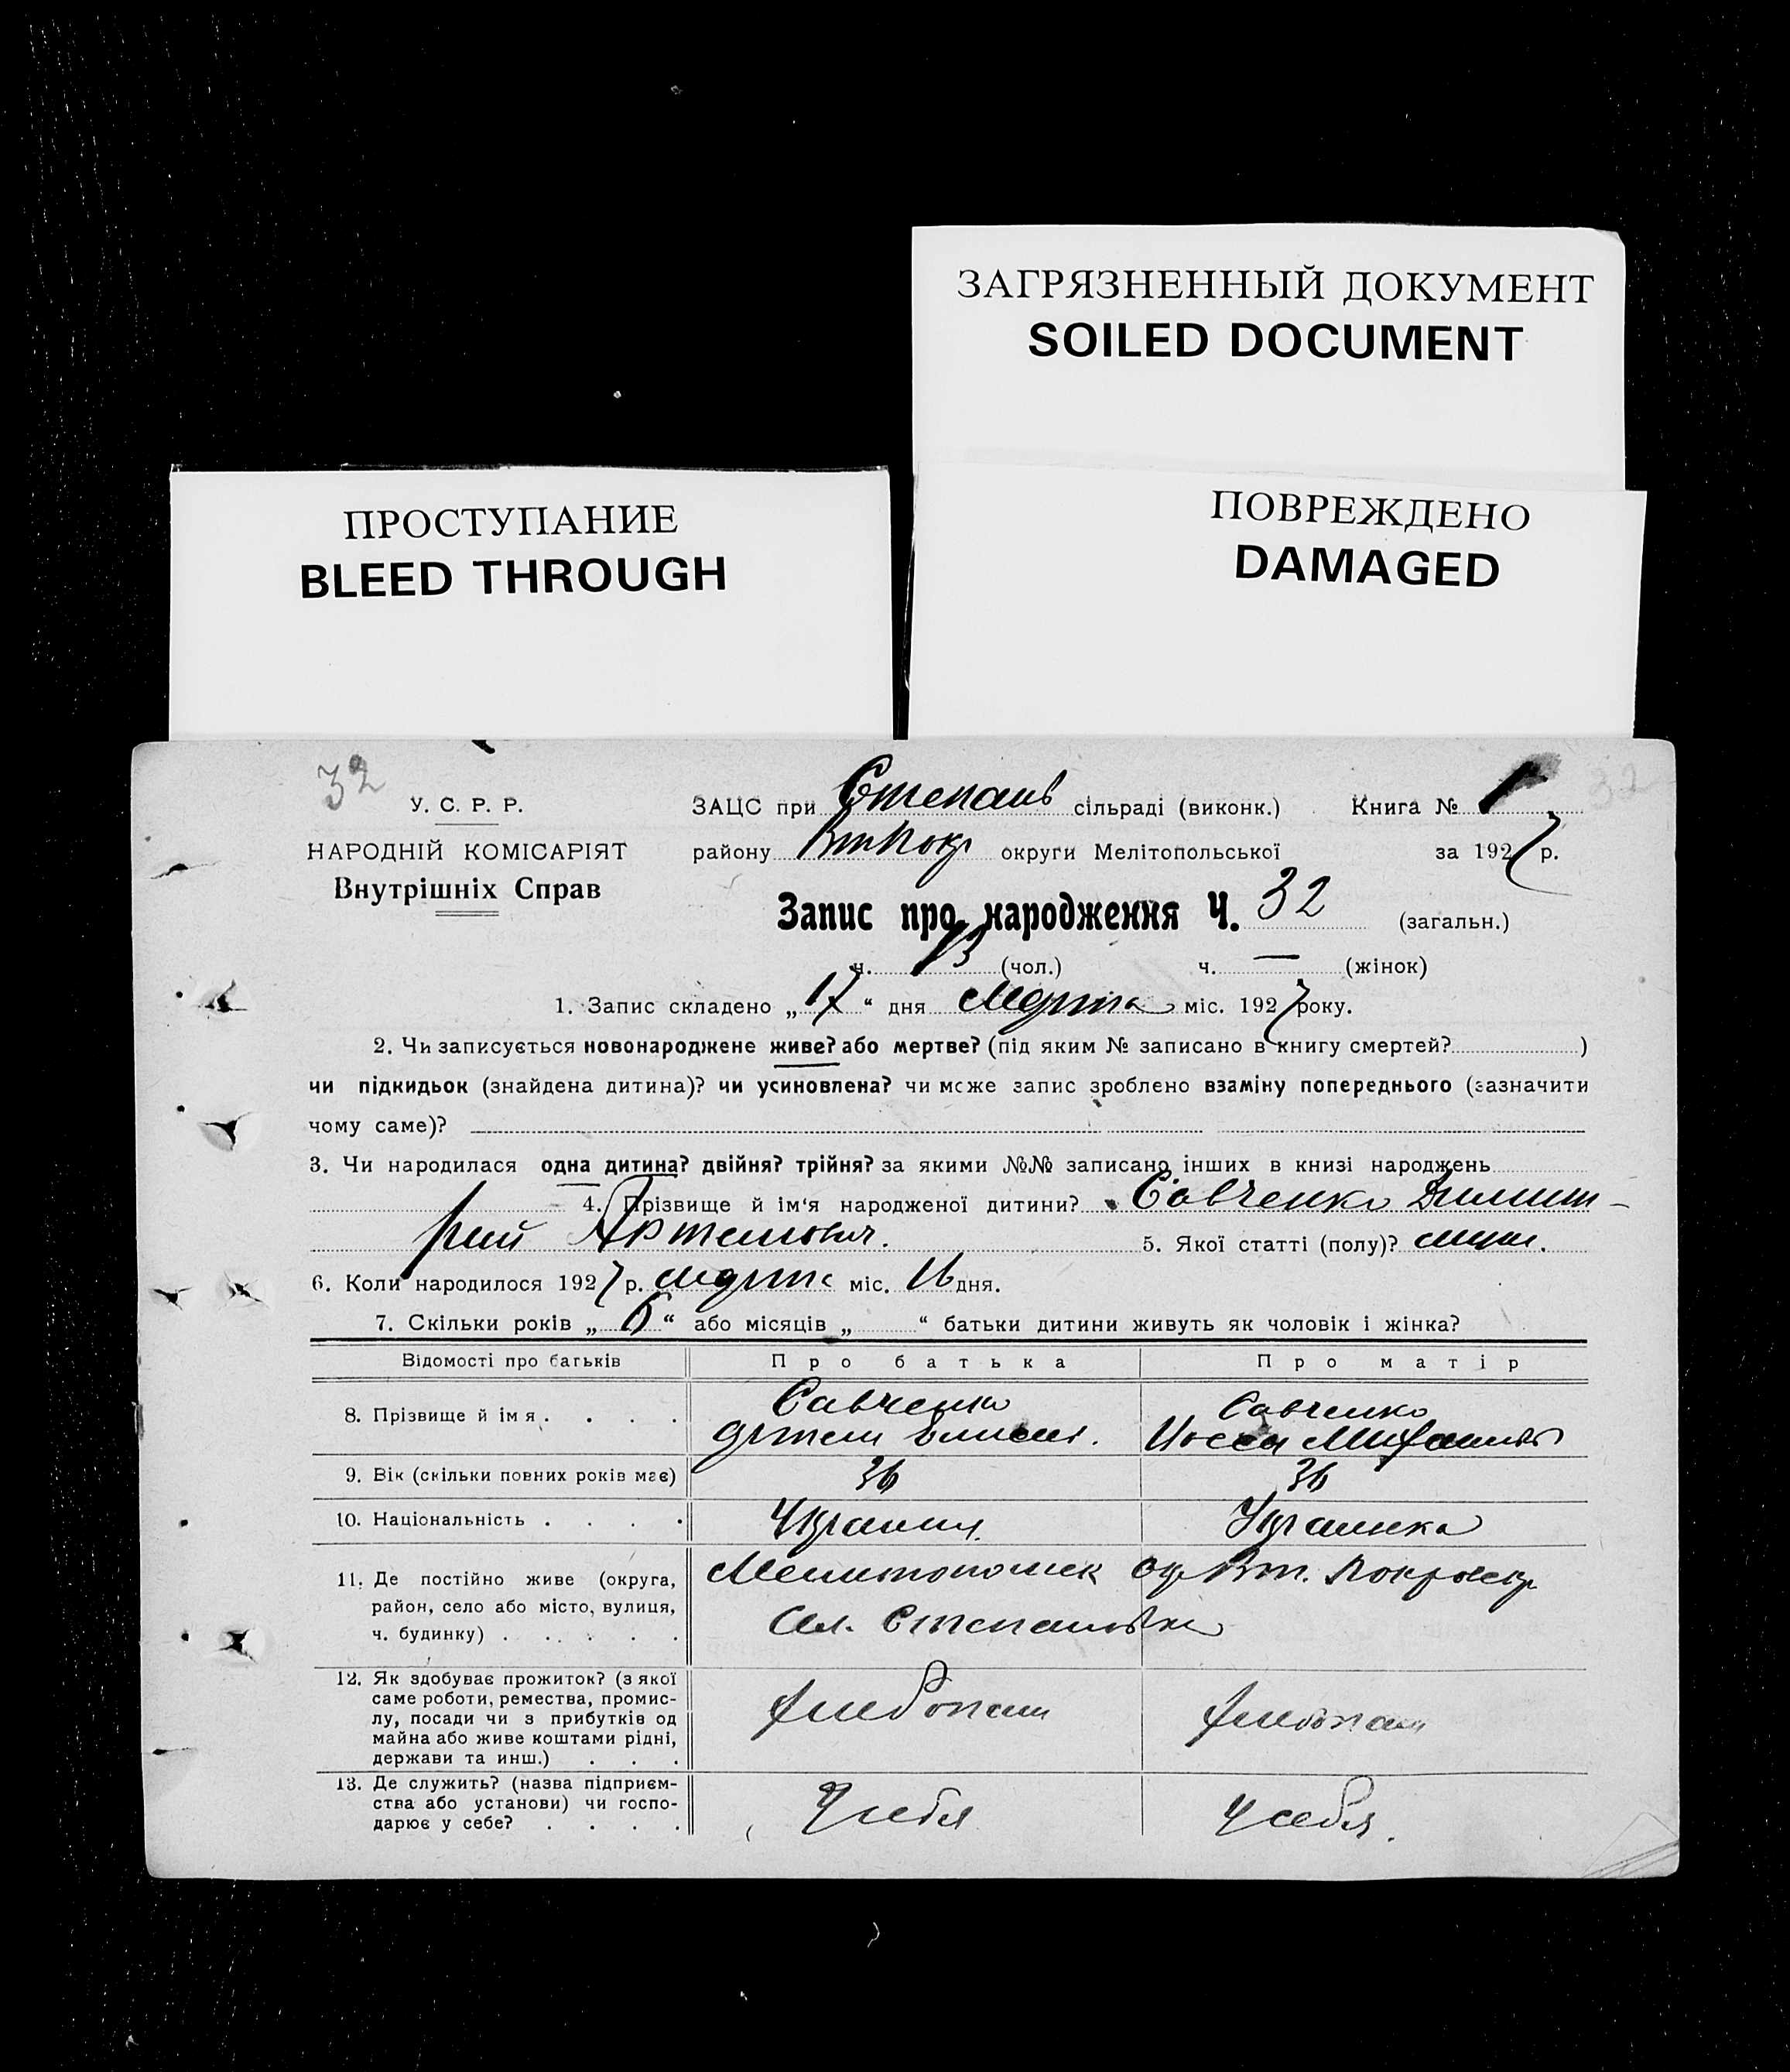 ЗАГРЯЗНЕННЫЙ ДОКУМЕНТ
SOILED DOCUMENT
ПРОСТУПАНИЕ
BLEED THROUGH
ПОВРЕЖДЕНО
DAMAGED
32
У. С. Р. Р.
НАРОДНІЙ КОМІСАРІЯТ
Внутрішніх Справ
ЗАЦС при Степанів сільраді (виконк.) Книга №
району ВтПокр округи Мелітопольської за 1927 р.
Запис про народження Ч. 32 (загальн.)
ч. 13 (чол.) ч. — (жінок)
1. Запис складено „17“ дня Марта міс. 1927 року.
2. Чи записується новонароджене живе? або мертве? (під яким № записано в книгу смертей? )
чи підкидьок (знайдена дитина)? чи усиновлена? чи може запис зроблено взаміну попереднього (зазначити
чому саме)?
3. Чи народилася одна дитина? двійня? трійня? за якими №№ записано інших в книзі народжень
4. Прізвище й ім‘я народженої дитини? Савченко Димит-
рий Артемович. 5. Якої статті (полу)? муж.
6. Коли народилося 1927 р. марта міс. 16 дня.
7. Скільки років „ “ або місяців „ “ батьки дитини живуть як чоловік і жінка?
Відомості про батьків Про батька Про матір
8. Прізвище й імя . . . . Савченко Савченко
Артем
9. Вік (скільки повних років має) 36 36
10. Національність . . . . Украинец. Украинка
11. Де постійно живе (округа, Мелитопольск окр Вт. Покровскр
район, село або місто, вулиця,
ч. будинку) . . . . . Сел. Степановка
12. Як здобуває прожиток? (з якої
саме роботи, ремества, промис-
лу, посади чи з прибутків од хлебопаш хлебопаш
майна або живе коштами рідні,
держави та инш.) . . .
13. Де служить? (назва підприєм-
ства або установи) чи госпо- У себя У себя.
дарює у себе? . . . .